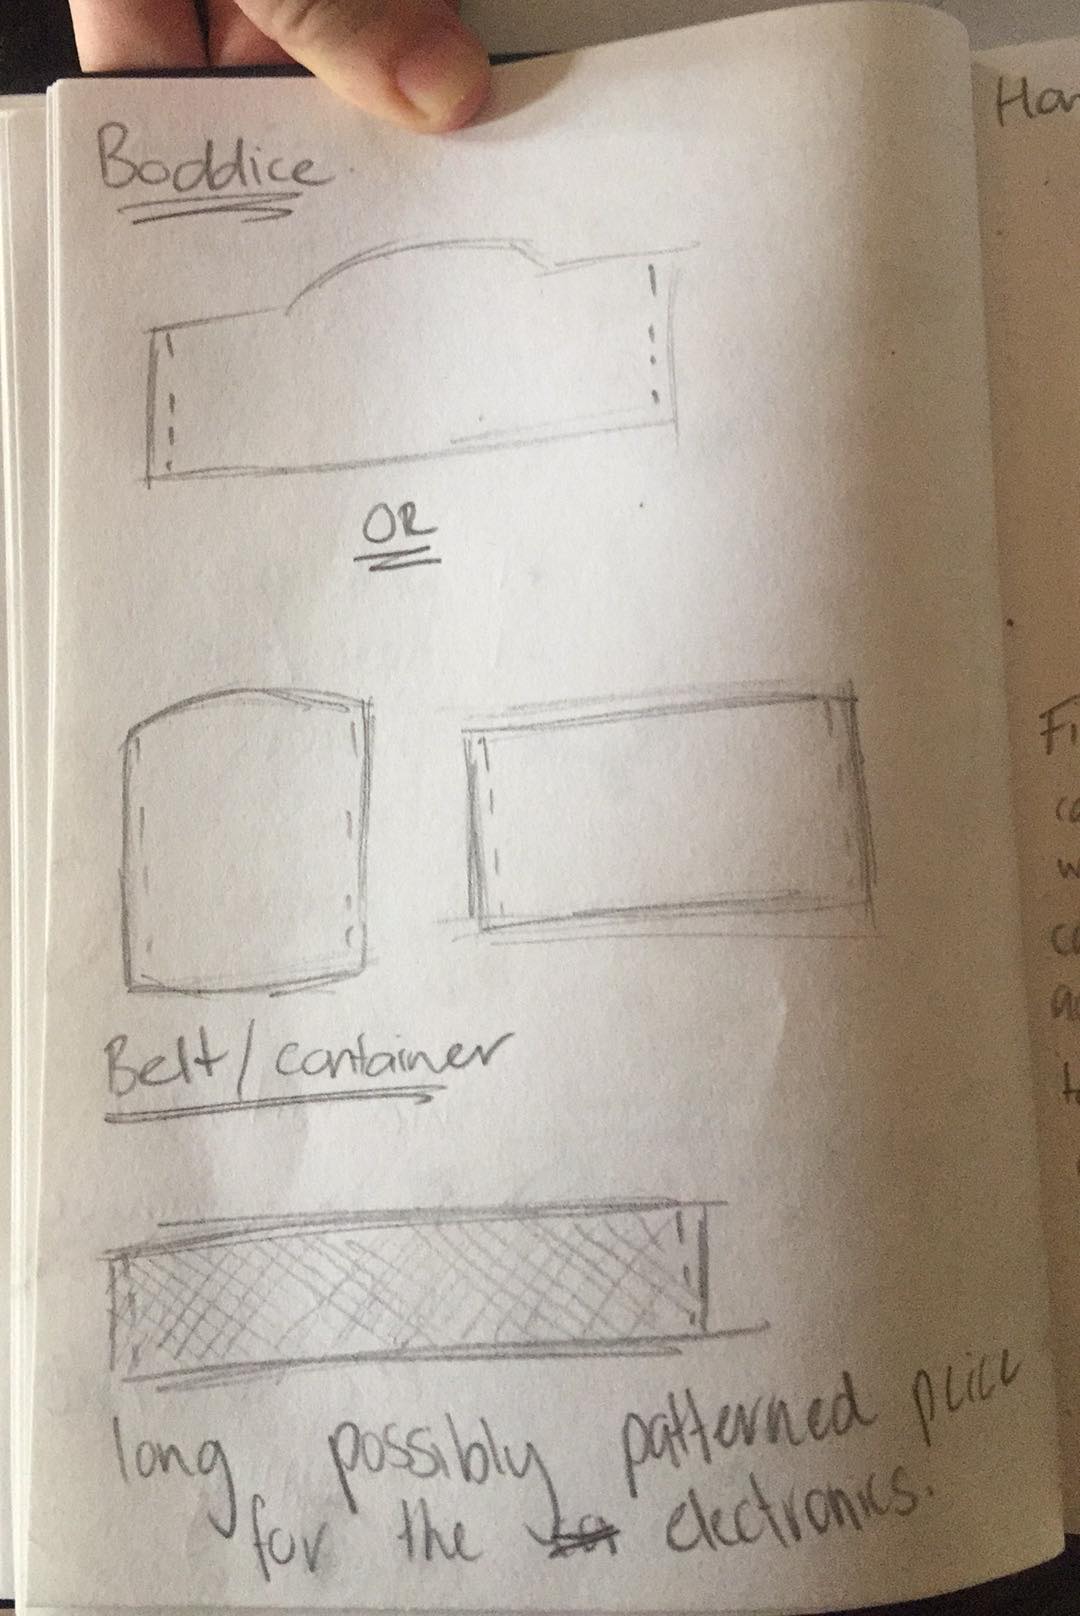 Boddice
OR
Belt/container
long possibly patterned
for the electronics.
Har
Fi
co
w
co
to